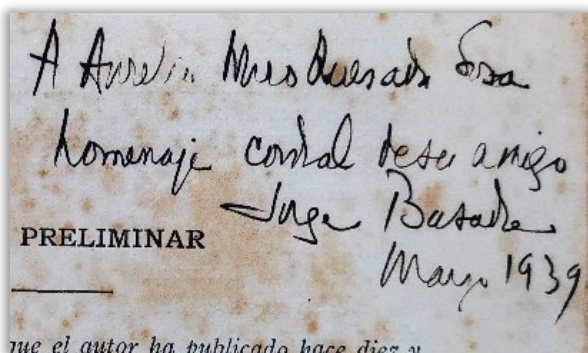 A Aurelio Miro Quesada Sosa
homenaje cordial de su amigo
Jorge Basadre
Marzo 1939
PRELIMINAR
que el autor ha publicado hace diez y